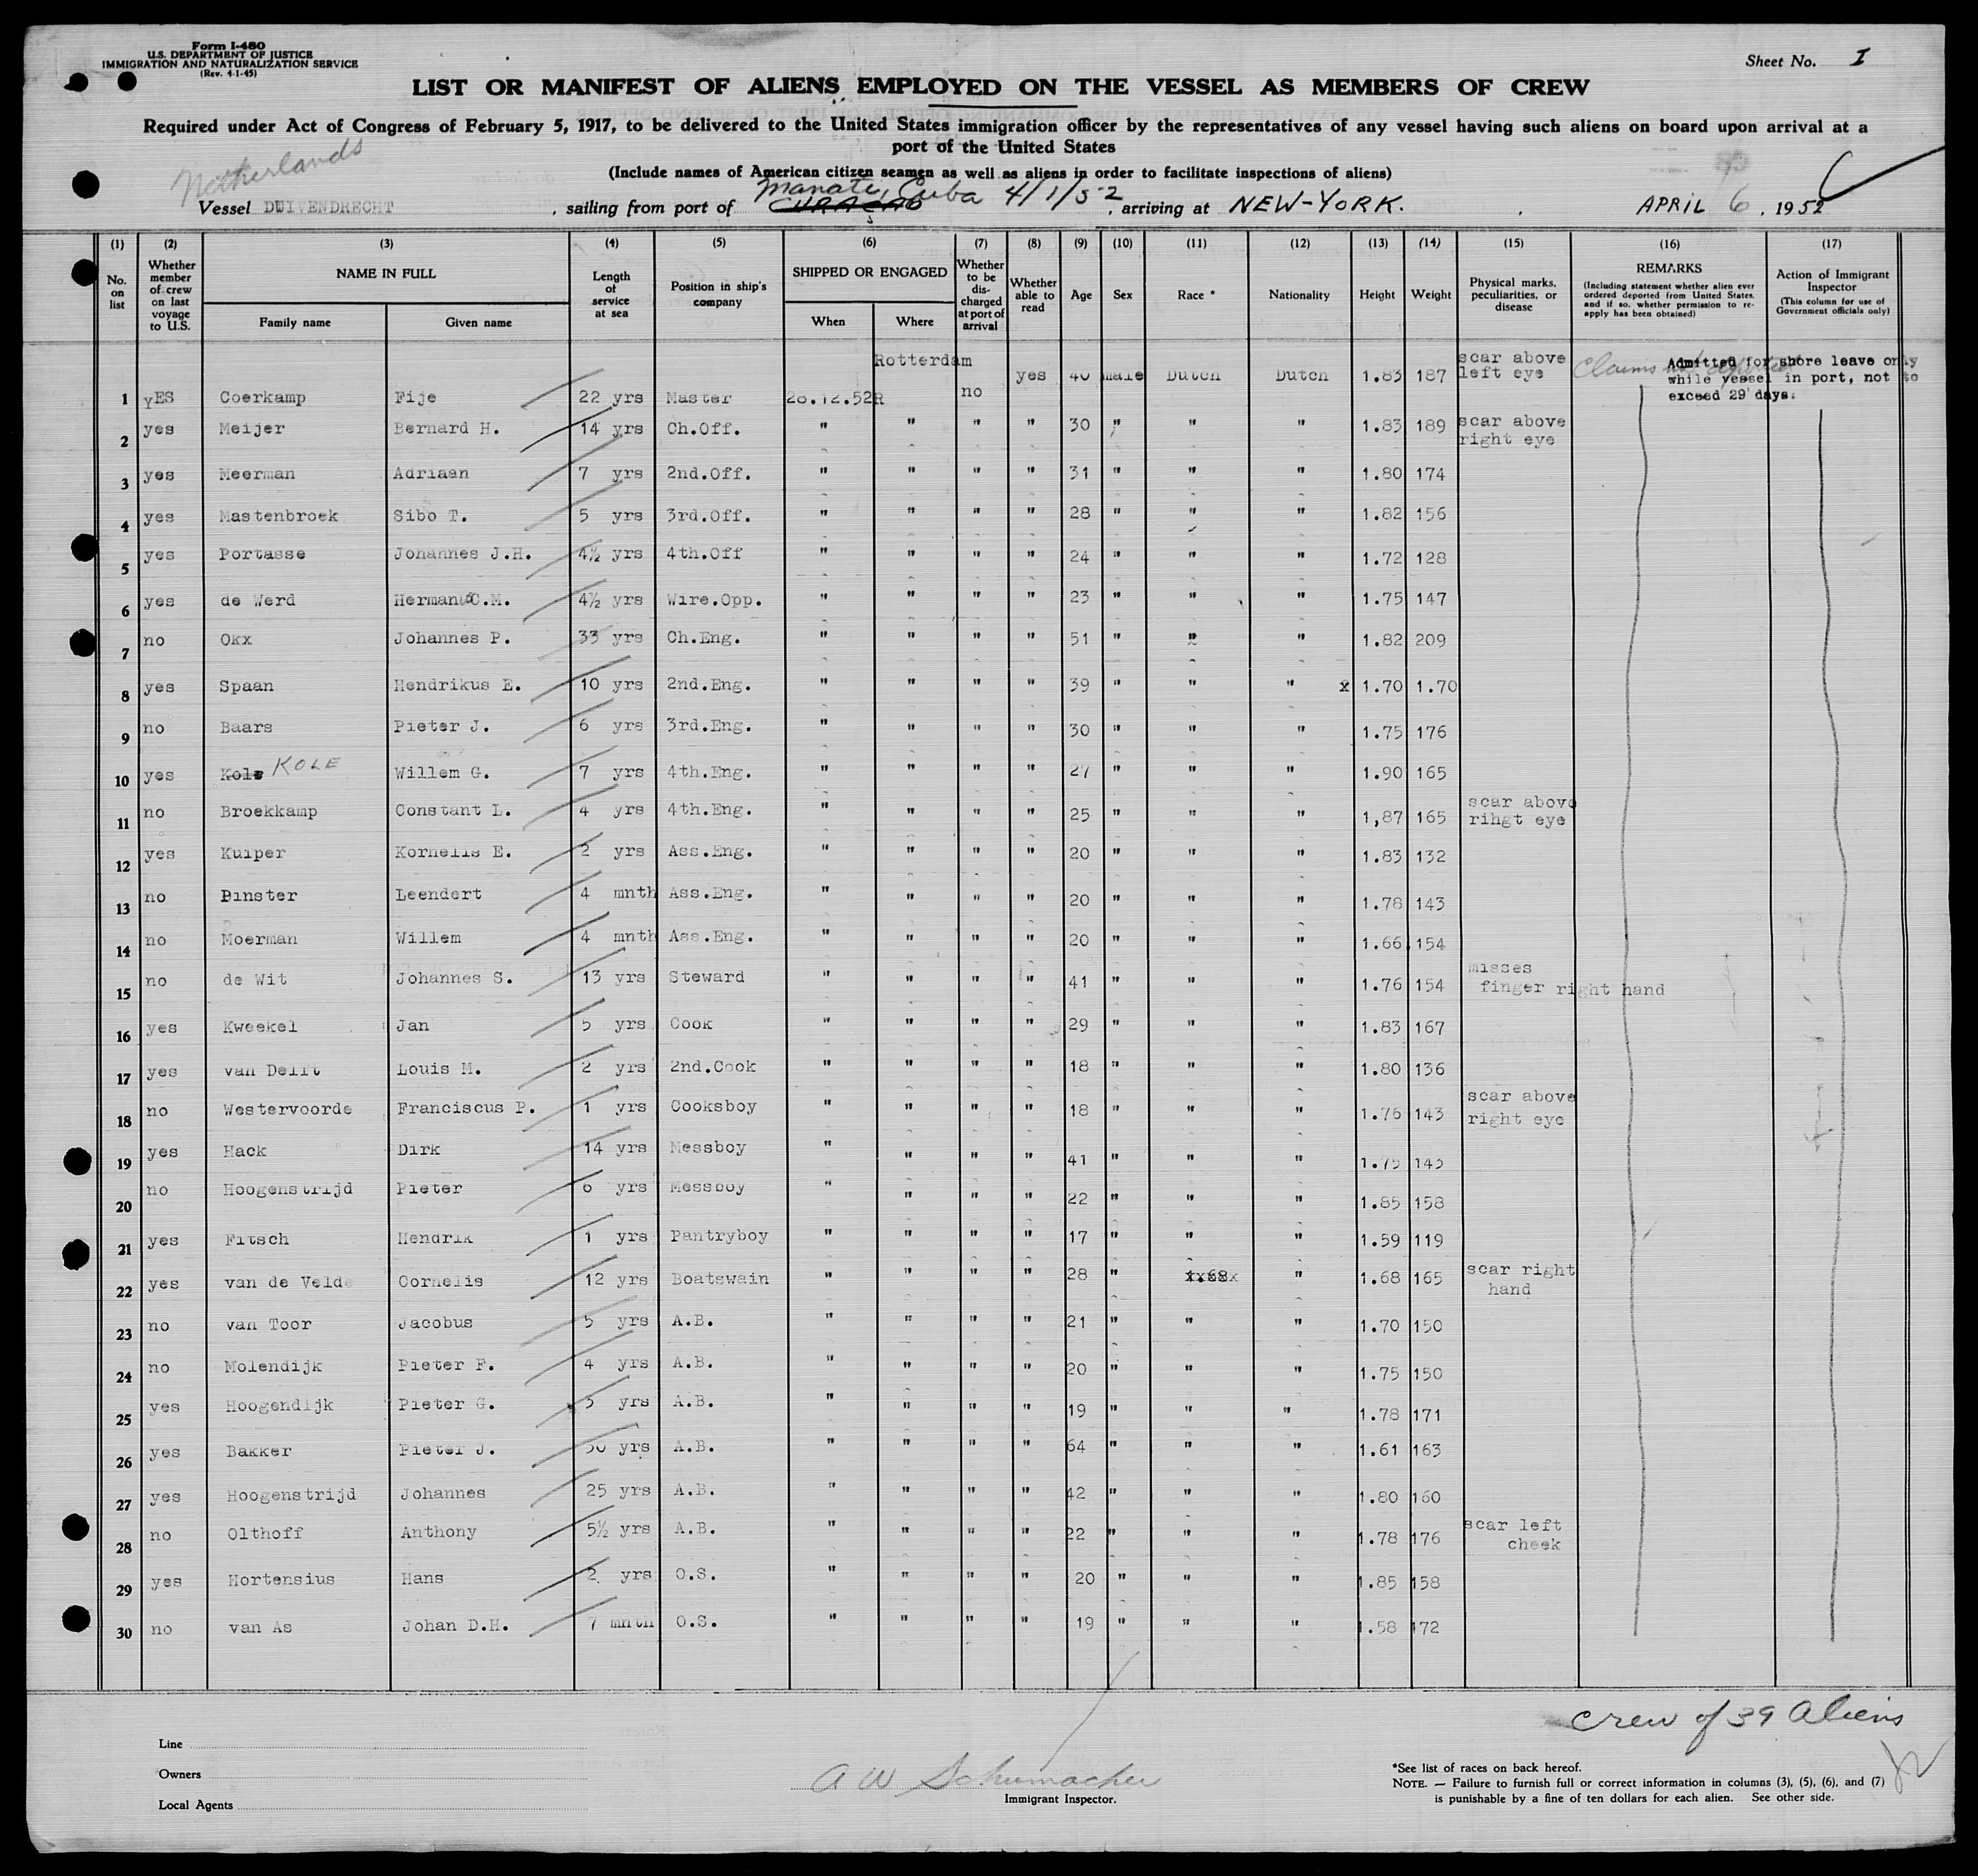 Form I-480
U.S. DEPARTMENT OF JUSTICE
IMMIGRATION AND NATURALIZATION SERVICE
(Rev. 4-1-45)
Sheet No. I
LIST OR MANIFEST OF ALIENS EMPLOYED ON THE VESSEL AS MEMBERS OF CREW
Required under Act of Congress of February 5, 1917, to be delivered to the United States immigration officer by the representatives of any vessel having such aliens on board upon arrival at a
port of the United States
(Include names of American citizen seamen as well as aliens in order to facilitate inspections of aliens)
Netherlands
Manati, Cuba 4/1/52
Vessel DUIVENDRECHT, sailing from port of CURACAO, arriving at NEW-YORK. APRIL 6, 1952
(1) (2) (3) (4) (5) (6) (7) (8) (9) (10) (11) (12) (13) (14) (15) (16) (17)
No. on list
Whether member of crew on last voyage to U.S.
NAME IN FULL
Family name
Given name
Length of service at sea
Position in ship's company
SHIPPED OR ENGAGED
When
Where
Whether to be discharged at port of arrival
Whether able to read
Age
Sex
Race *
Nationality
Height
Weight
Physical marks, peculiarities, or disease
REMARKS
(Including statement whether alien ever ordered deported from United States, and if so, whether permission to re-apply has been obtained)
Action of Immigrant Inspector
(This column for use of Government officials only)
Claims
Admitted for shore leave only
while vessel in port, not to
exceed 29 days.
1 yES Coerkamp Fije 22 yrs Master 28.12.52R Rotterdam no yes 40 male Dutch Dutch 1.83 187 scar above left eye
2 yes Meijer Bernard H. 14 yrs Ch.Off. " " " " 30 " " " 1.83 189 scar above right eye
3 yes Meerman Adriaan 7 yrs 2nd.Off. " " " " 31 " " " 1.80 174
4 yes Mastenbroek Sibo T. 5 yrs 3rd.Off. " " " " 28 " " " 1.82 156
5 yes Portasse Johannes J.H. 4½ yrs 4th.Off " " " " 24 " " " 1.72 128
6 yes de Werd Hermanus C.M. 4½ yrs Wire.Opp. " " " " 23 " " " 1.75 147
7 no Okx Johannes P. 33 yrs Ch.Eng. " " " " 51 " " " 1.82 209
8 yes Spaan Hendrikus E. 10 yrs 2nd.Eng. " " " " 39 " " " x 1.70 1.70
9 no Baars Pieter J. 6 yrs 3rd.Eng. " " " " 30 " " " 1.75 176
10 yes Kole KOLE Willem G. 7 yrs 4th.Eng. " " " " 27 " " " 1.90 165
11 no Broekkamp Constant L. 4 yrs 4th.Eng. " " " " 25 " " " 1,87 165 scar above rihgt eye
12 yes Kuiper Kornelis E. 2 yrs Ass.Eng. " " " " 20 " " " 1.83 132
13 no Pinster Leendert 4 mnth Ass.Eng. " " " " 20 " " " 1.78 143
14 no Moerman Willem 4 mnth Ass.Eng. " " " " 20 " " " 1.66 154
15 no de Wit Johannes S. 13 yrs Steward " " " " 41 " " " 1.76 154 misses finger right hand
16 yes Kweekel Jan 5 yrs Cook " " " " 29 " " " 1.83 167
17 yes van Delft Louis M. 2 yrs 2nd.Cook " " " " 18 " " " 1.80 136
18 no Westervoorde Franciscus P. 1 yrs Cooksboy " " " " 18 " " " 1.76 143 scar above right eye
19 yes Hack Dirk 14 yrs Messboy " " " " 41 " " " 1.75 143
20 no Hoogenstrijd Pieter 6 yrs Messboy " " " " 22 " " " 1.85 158
21 yes Fitsch Hendrik 1 yrs Pantryboy " " " " 17 " " " 1.59 119
22 yes van de Velde Cornelis 12 yrs Boatswain " " " " 28 " 1.68 " 1.68 165 scar right hand
23 no van Toor Jacobus 5 yrs A.B. " " " " 21 " " " 1.70 150
24 no Molendijk Pieter F. 4 yrs A.B. " " " " 20 " " " 1.75 150
25 yes Hoogendijk Pieter G. 3 yrs A.B. " " " " 19 " " " 1.78 171
26 yes Bakker Pieter J. 50 yrs A.B. " " " " 64 " " " 1.61 163
27 yes Hoogenstrijd Johannes 25 yrs A.B. " " " " 42 " " " 1.80 160
28 no Olthoff Anthony 5½ yrs A.B. " " " " 22 " " " 1.78 176 scar left cheek
29 yes Hortensius Hans 2 yrs O.S. " " " " 20 " " " 1.85 158
30 no van As Johan D.H. 7 mnth O.S. " " " " 19 " " " 1.58 172
Crew of 39 Aliens
Line
Owners
Local Agents
A W Schumacher
Immigrant Inspector.
*See list of races on back hereof.
NOTE. — Failure to furnish full or correct information in columns (3), (5), (6), and (7)
is punishable by a fine of ten dollars for each alien. See other side.